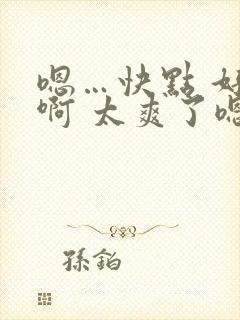 嗯…快點
啊 太爽了
孫鉑